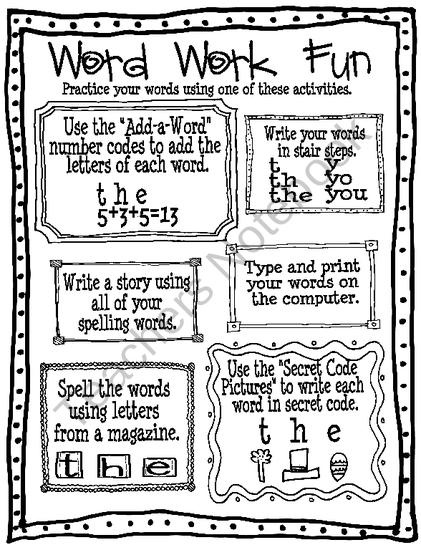 Word Work Fun
Practice your words using one of these activities.
Use the "Add-a-Word"
number codes to add the
letters of each word.
t h e
5+3+5=13
Write your words
in stair steps.
t y
th yo
the you
Write a story using
all of your
spelling words.
Type and print
your words on
the computer.
Spell the words
using letters
from a magazine.
t h e
Use the "Secret Code
Pictures" to write each
word in secret code.
t h e
Teachers Notebook